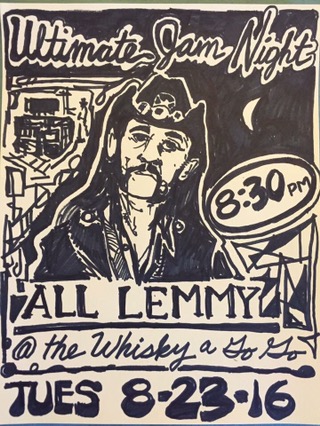 Ultimate Jam Night
8:30 PM
ALL LEMMY
@ the Whisky a Go Go
TUES 8-23-16